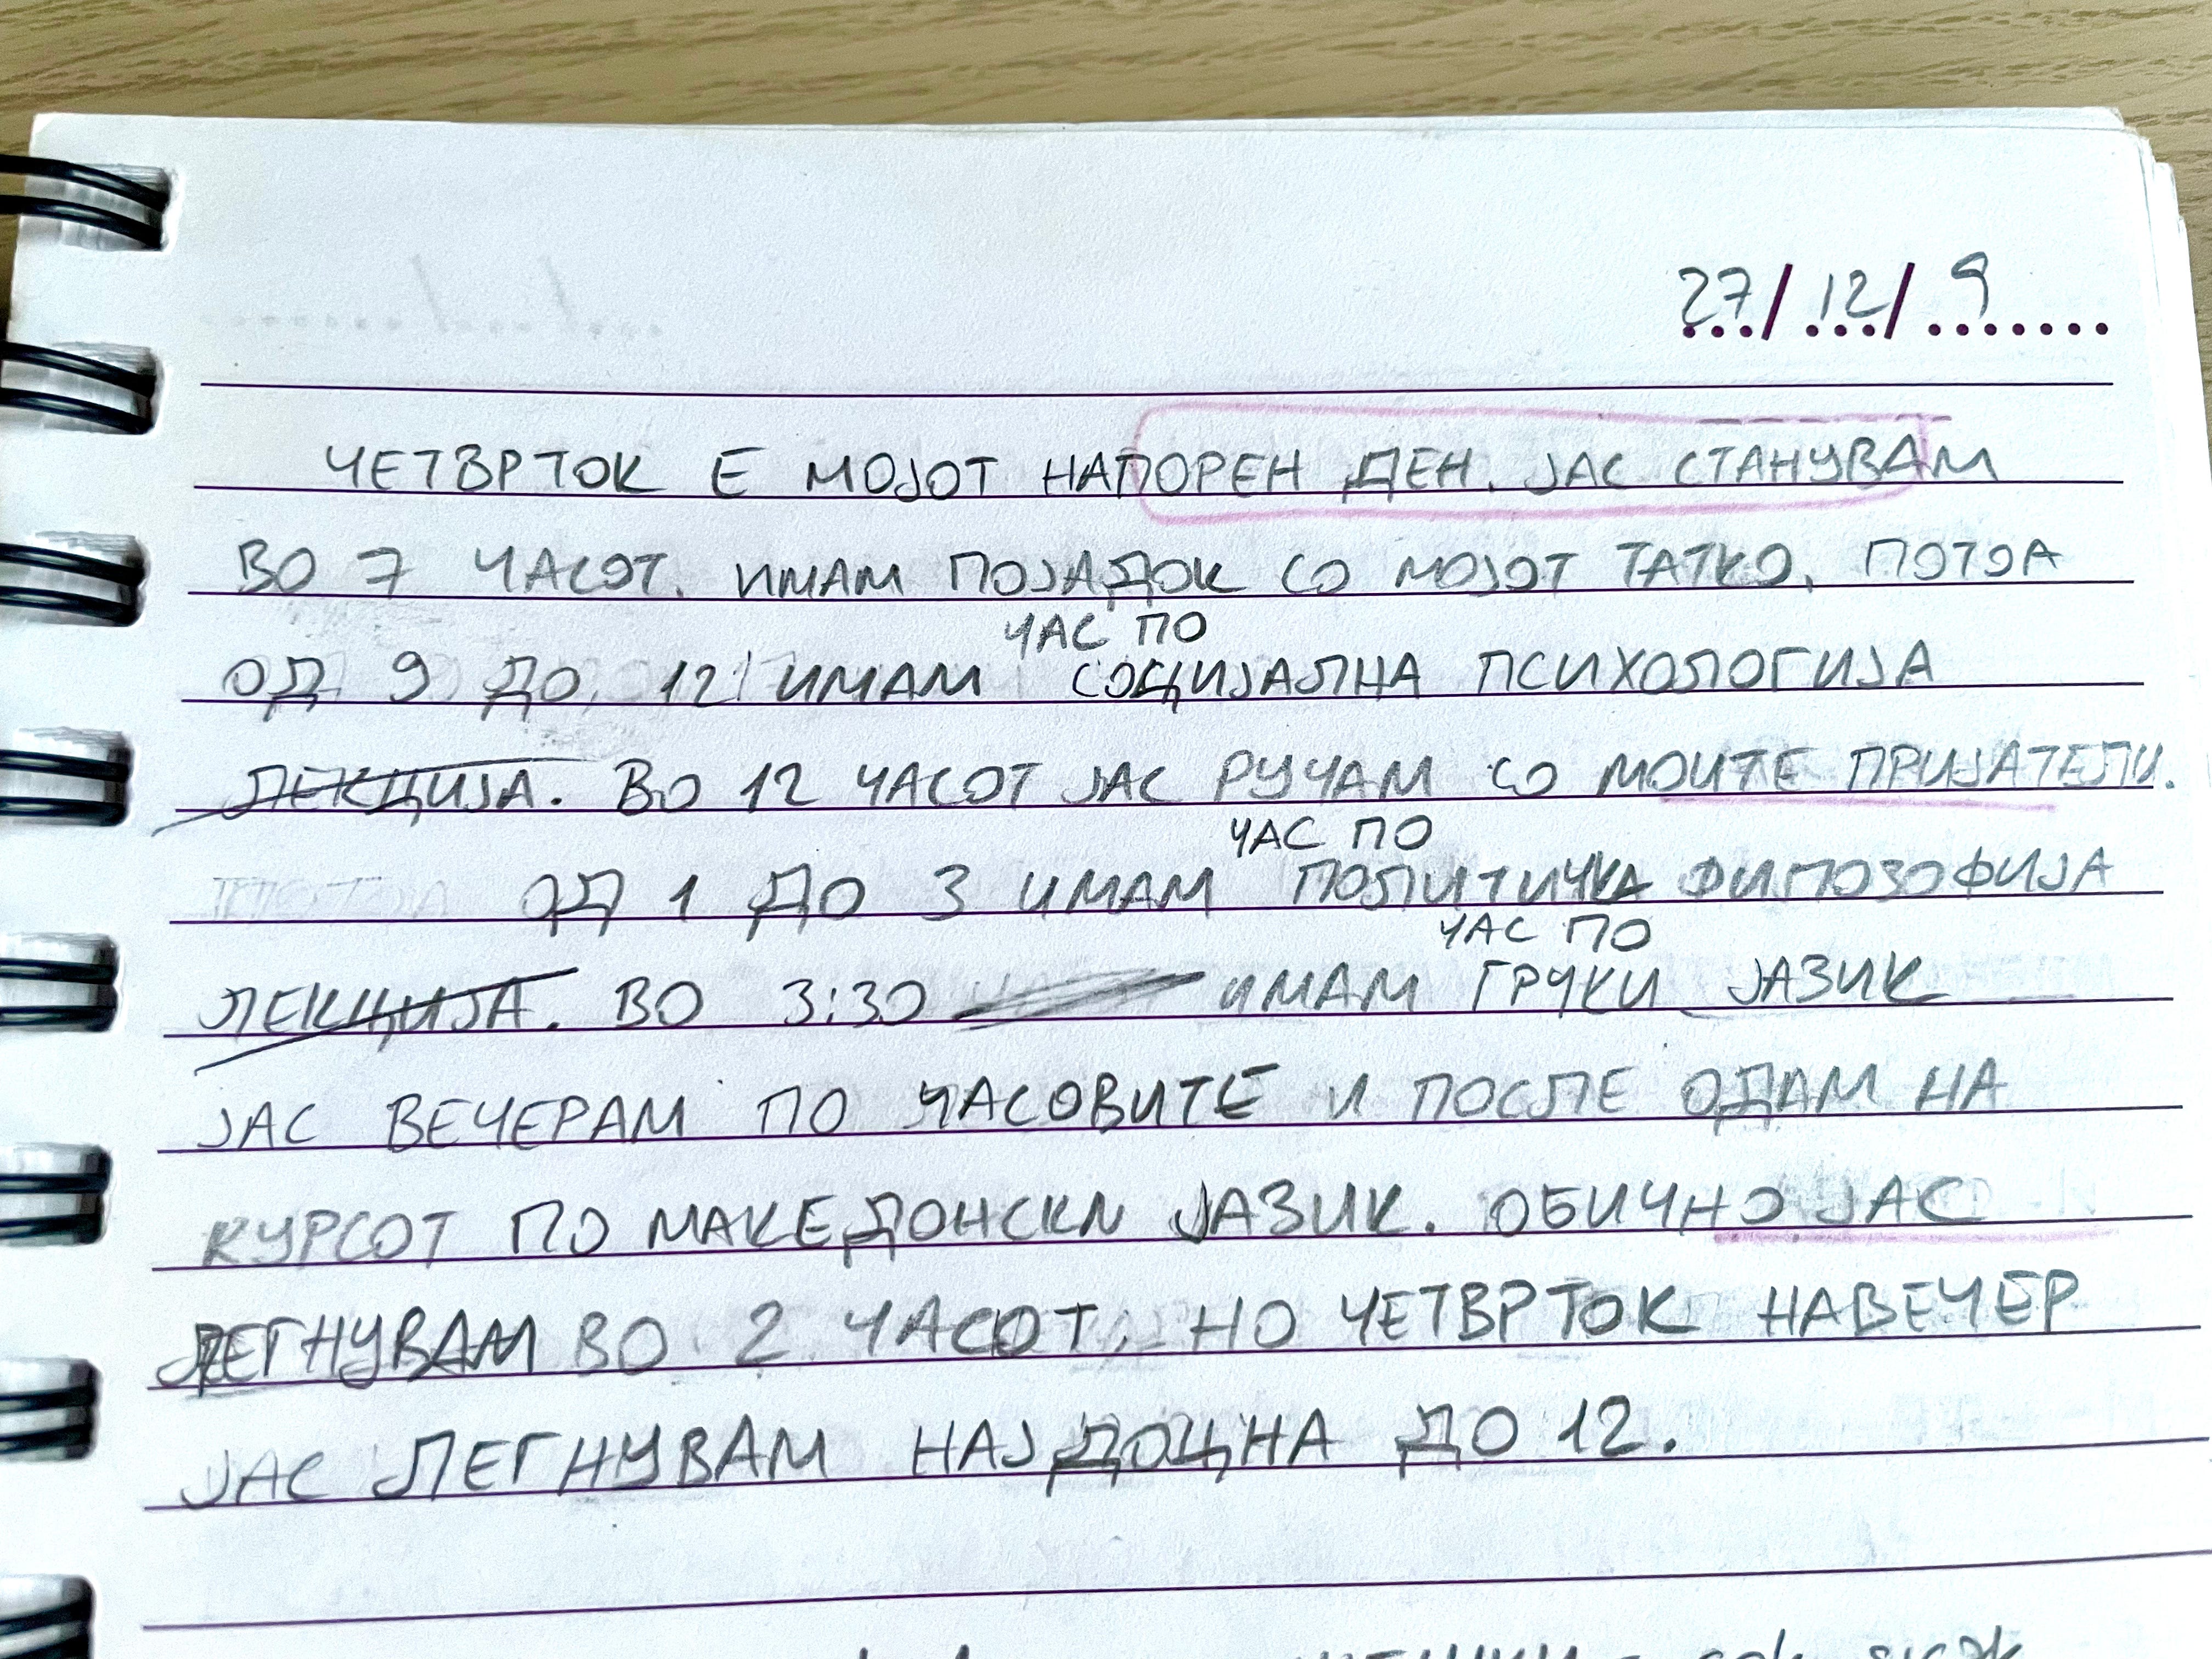 27/12/9
ЧЕТВРТОК Е МОЈОТ НАПОРЕН ДЕН. ЈАС СТАНУВАМ
ВО 7 ЧАСОТ. ИМАМ ПОЈАДОК СО МОЈОТ ТАТКО. ПОТОА
ЧАС ПО
ОД 9 ДО 12 ИМАМ СОЦИЈАЛНА ПСИХОЛОГИЈА
ЛЕКЦИЈА. ВО 12 ЧАСОТ ЈАС РУЧАМ СО МОИТЕ ПРИЈАТЕЛИ.
ЧАС ПО
ОД 1 ДО 3 ИМАМ ПОЛИТИЧКА ФИЛОЗОФИЈА
ЧАС ПО
ЛЕКЦИЈА. ВО 3:30 ИМАМ ГРЧКИ ЈАЗИК
ЈАС ВЕЧЕРАМ ПО ЧАСОВИТЕ И ПОСЛЕ ОДАМ НА
КУРСОТ ПО МАКЕДОНСКИ ЈАЗИК. ОБИЧНО ЈАС
ЛЕГНУВАМ ВО 2 ЧАСОТ, НО ЧЕТВРТОК НАВЕЧЕР
ЈАС ЛЕГНУВАМ НАЈДОЦНА ДО 12.